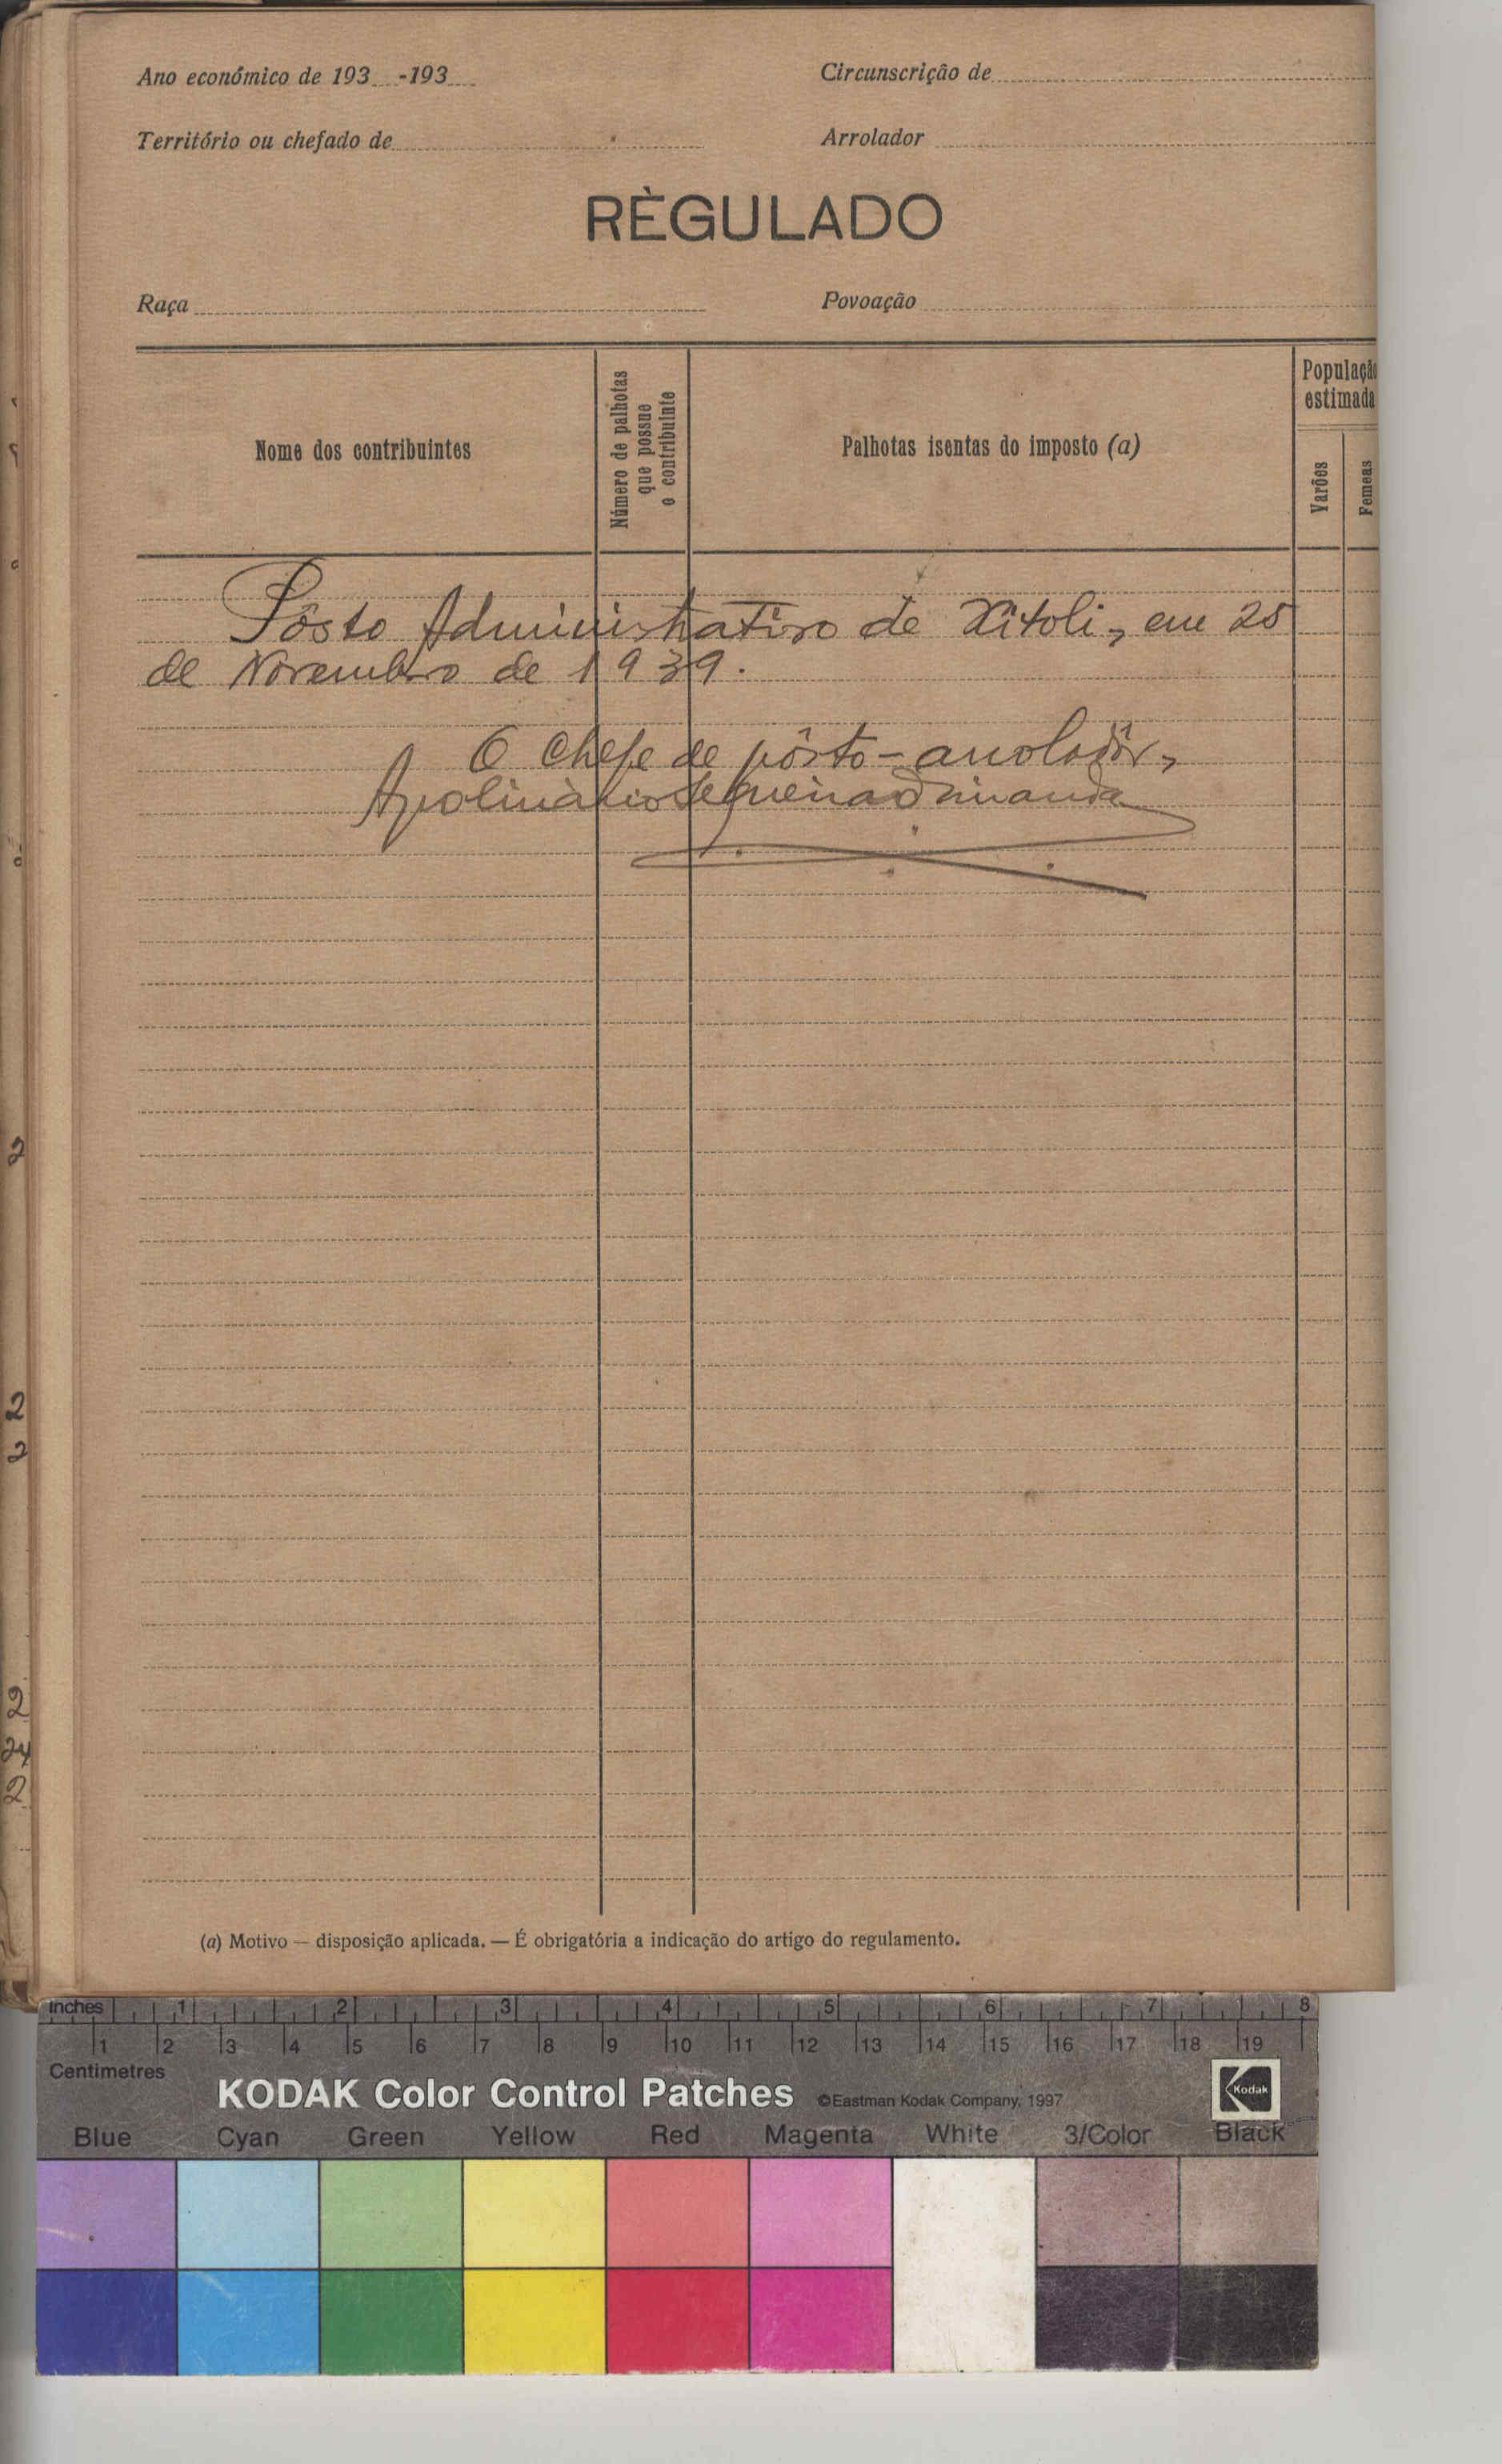 Ano económico de 193 -193
Circunscrição de
Território ou chefado de
Arrolador
RÈGULADO
Raça
Povoação
Nome dos contribuintes
Número de palhotas
que possue
o contribuinte
Palhotas isentas do imposto (a)
Populaçã
estimada
Varões
Femeas
Pôsto Administrativo de Xitoli, em 25
de Novembro de 1939.
O Chefe de pôsto-arroladôr,
Apolinário Sequeira
(a) Motivo — disposição aplicada. — É obrigatória a indicação do artigo do regulamento.
Inches 1 2 3 4 5 6 7 8
1 2 3 4 5 6 7 8 9 10 11 12 13 14 15 16 17 18 19
Centimetres
KODAK Color Control Patches ©Eastman Kodak Company, 1997
Kodak
Blue Cyan Green Yellow Red Magenta White 3/Color Black